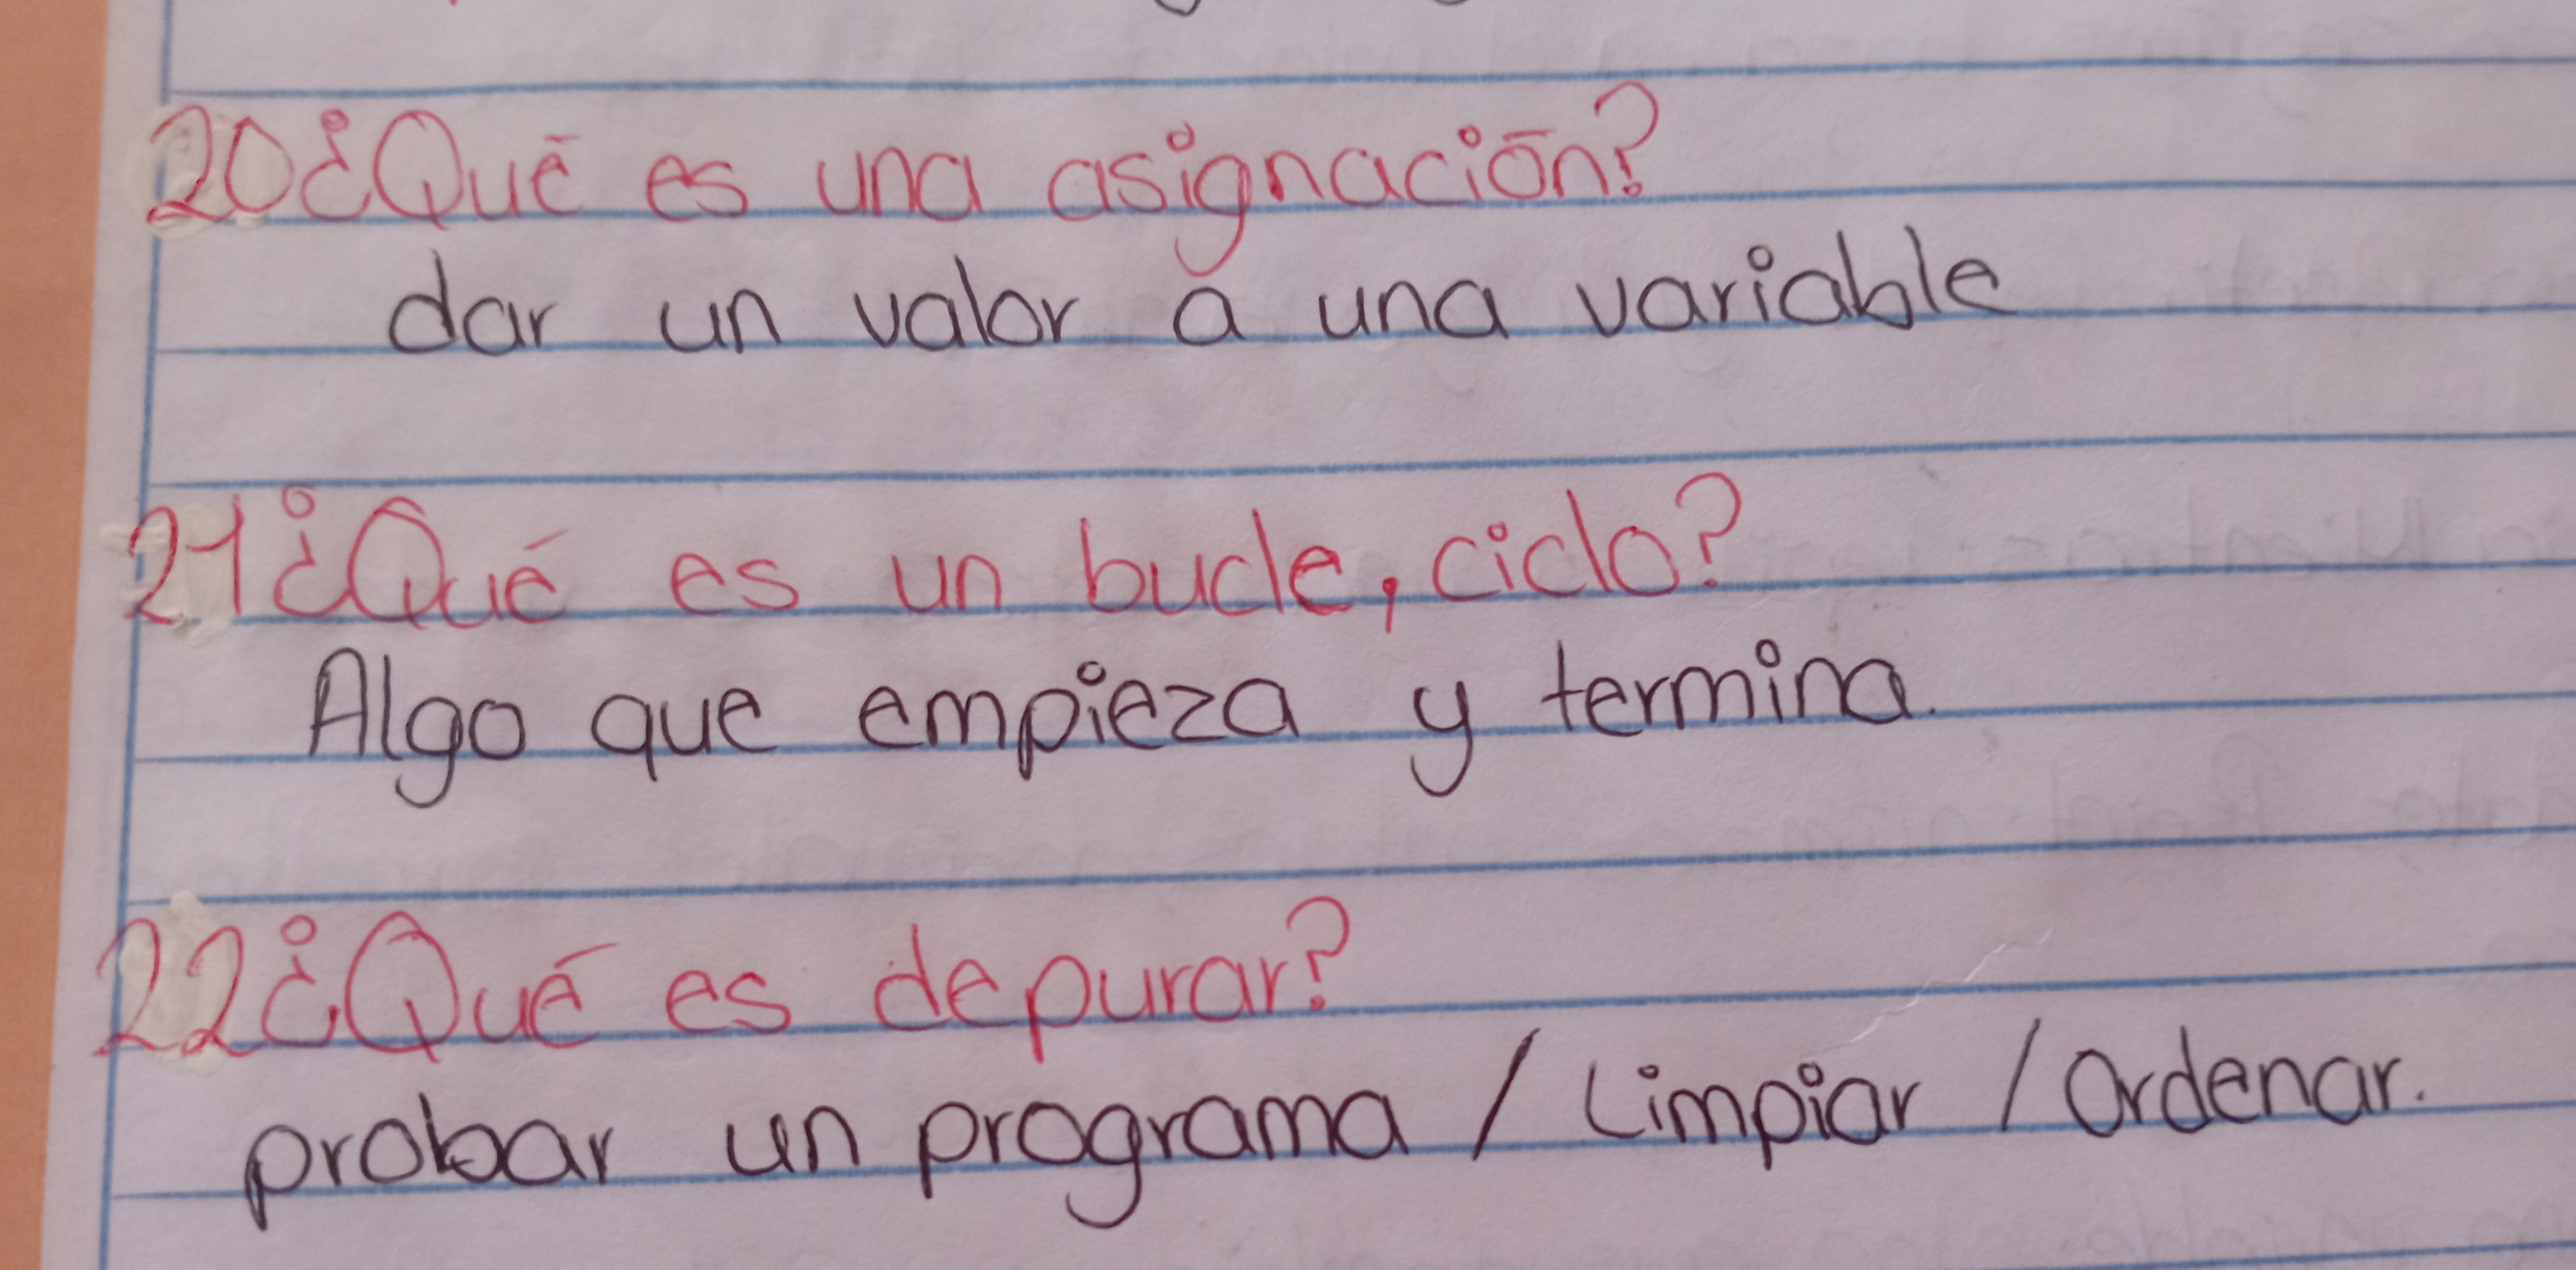 20¿Qué es una asignación?
dar un valor a una variable
21¿Qué es un bucle, ciclo?
Algo que empieza y termina.
22¿Qué es depurar?
probar un programa / Limpiar / Ordenar.